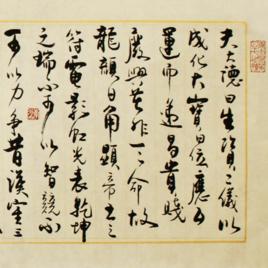 夫大德曰生資二儀以
成化大寶曰位應五
運而遞昌貴賤
廢興莫非天命故
龍顏日角顯帝王之
符電影虹光表乾坤
之瑞不可以智競不
可以力爭昔漢室三